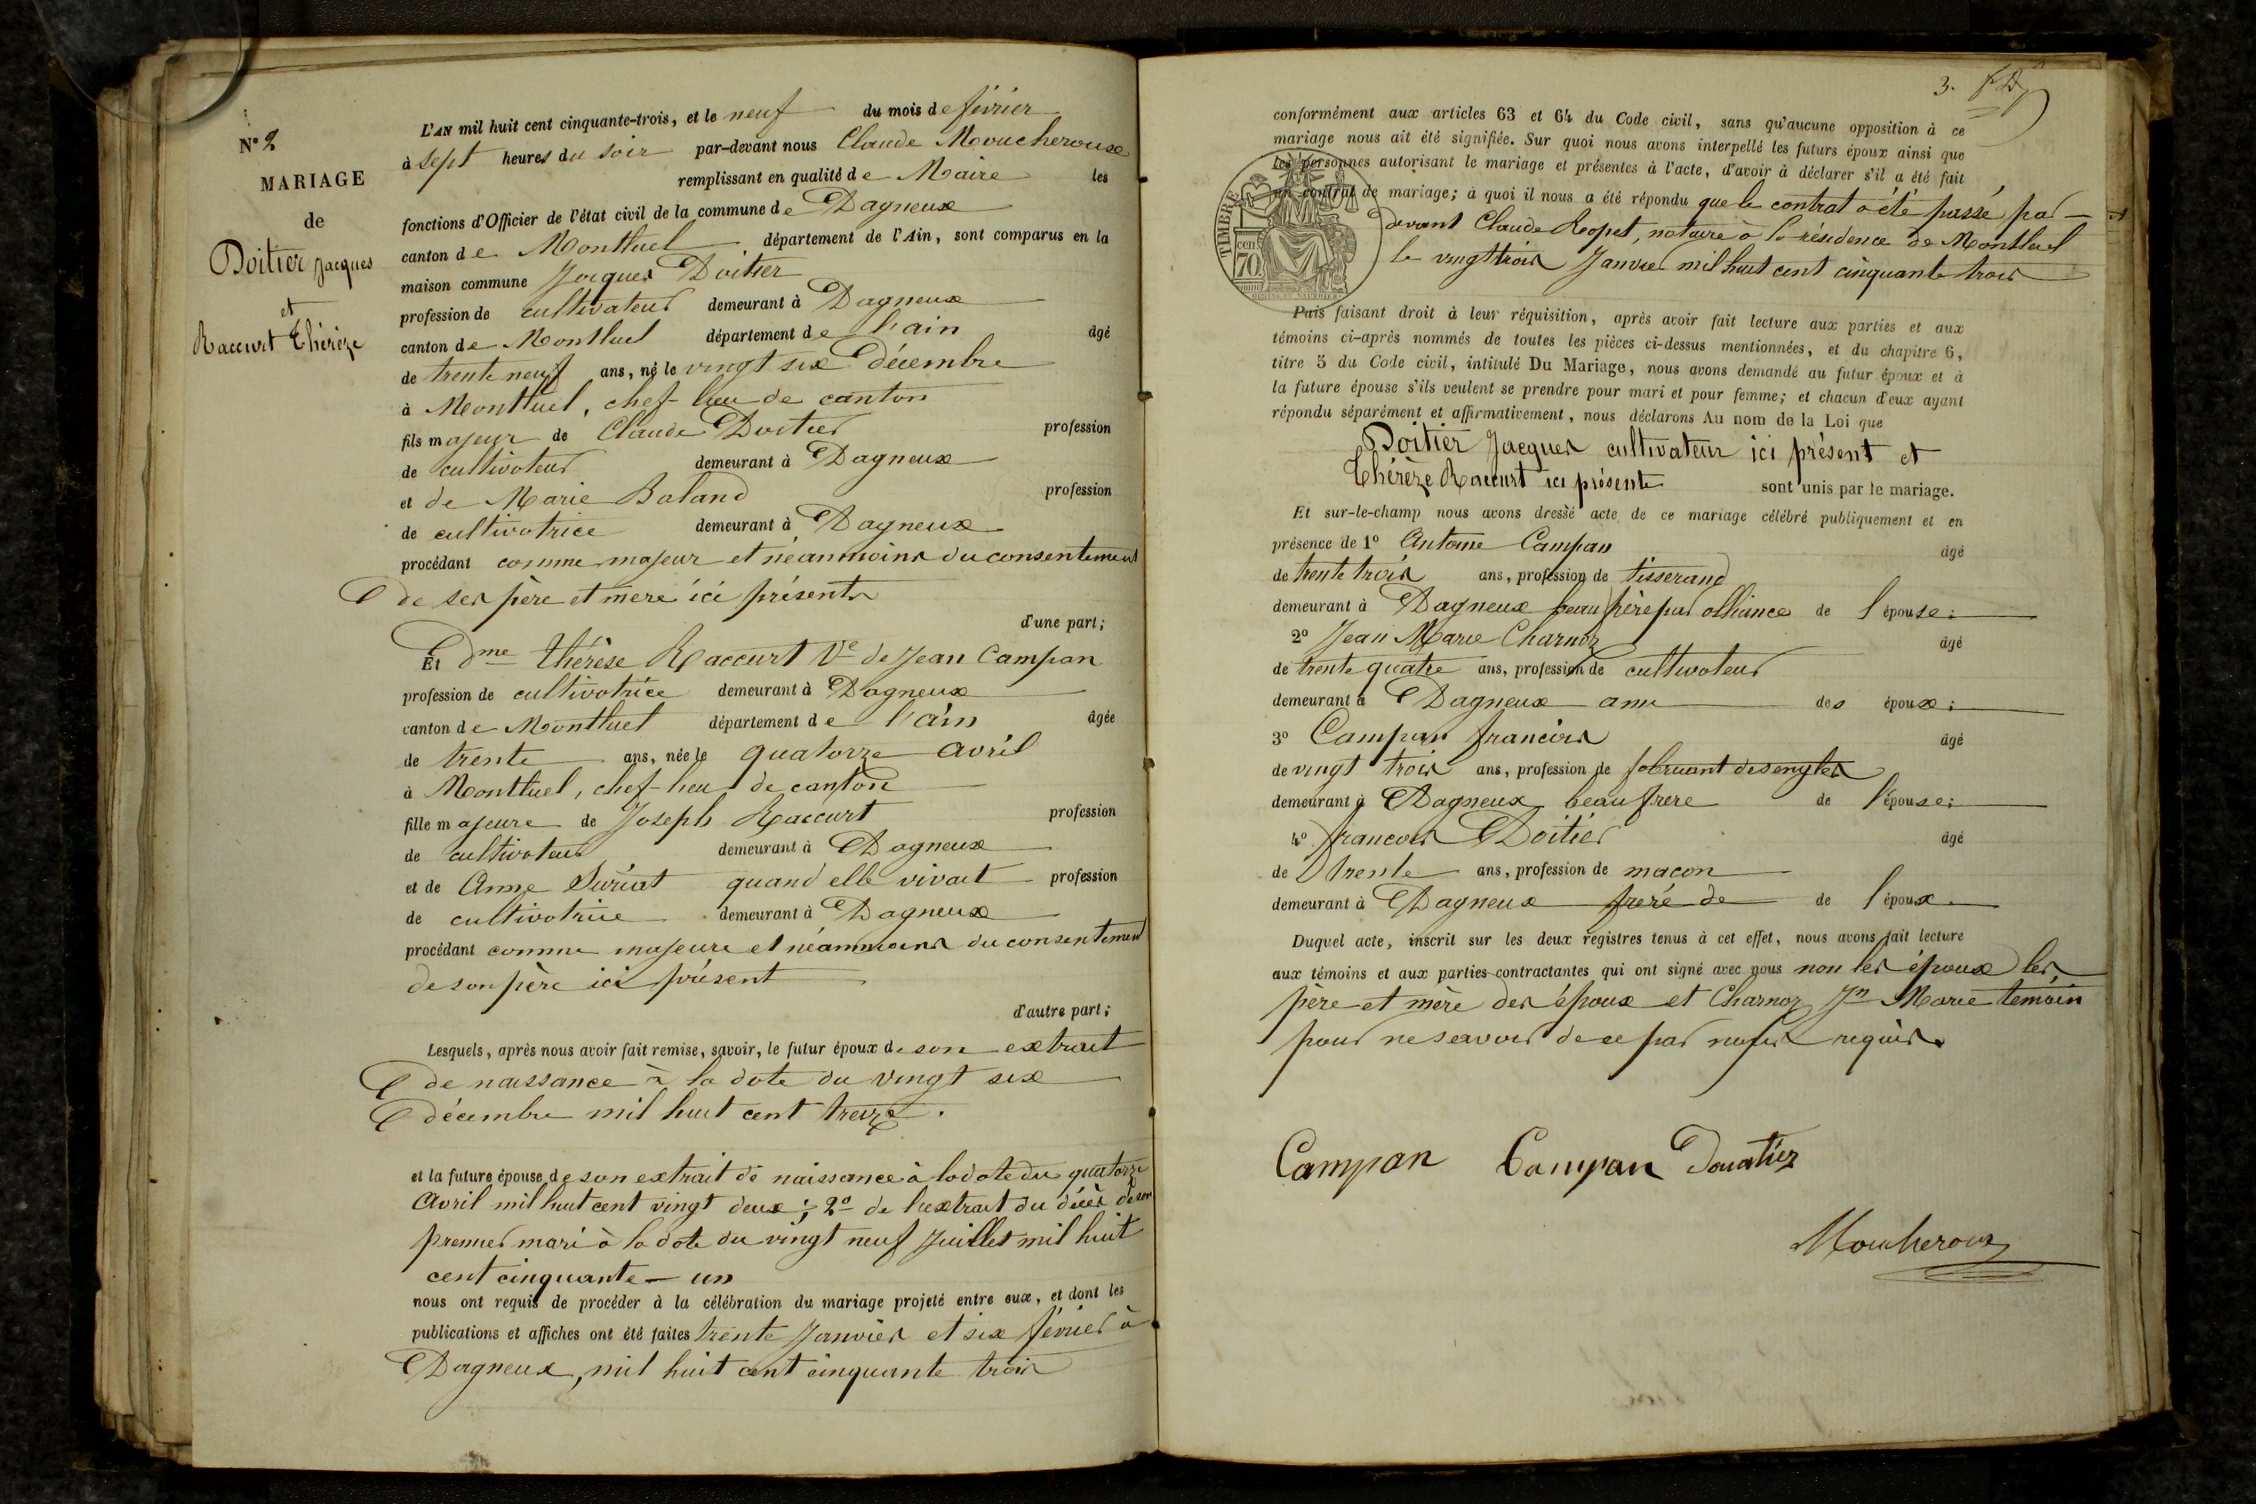 N° 2
MARIAGE
de
Doitier Jacques
et
Raccurt Thérèze
L'AN mil huit cent cinquante-trois, et le neuf du mois de février
à sept heures du soir par-devant nous Claude Moucheroux
remplissant en qualité de Maire les
fonctions d'Officier de l'état civil de la commune de Dagneux
canton de Montluel département de l'Ain, sont comparus en la
maison commune Jacques Doitier
profession de cultivateur demeurant à Dagneux
canton de Montluel département de l'ain âgé
de trente neuf ans, né le vingt six Décembre
à Montluel, chef-lieu de canton
fils majeur de Claude Doitier profession
de cultivateur demeurant à Dagneux
et de Marie Baland profession
de cultivatrice demeurant à Dagneux
procédant comme majeur et néanmoins du consentement
de ses père et mere ici présents
d'une part;
Et dme thérèse Raccurt Ve de Jean Campan
profession de cultivatrice demeurant à Dagneux
canton de Montluel département de l'ain âgée
de trente ans, née le quatorze avril
à Montluel, chef-lieu de canton
fille majeure de Joseph Raccurt profession
de cultivateur demeurant à Dagneux
et de Anne Suriat quand elle vivait profession
de cultivatrice demeurant à Dagneux
procédant comme majeure et néanmoins du consentement
de son père ici présent
d'autre part;
Lesquels, après nous avoir fait remise, savoir, le futur époux de son extrait
de naissance à la date du vingt six
décembre mil huit cent treize.
et la future épouse de son extrait de naissance à la date du quatorze
Avril mil huit cent vingt deux; 2° de l'extrait du décès de son
premier mari à la date du vingt neuf Juillet mil huit
cent cinquante-un
nous ont requis de procéder à la célébration du mariage projeté entre eux, et dont les
publications et affiches ont été faites trente Janvier et six février à
Dagneux, mil huit cent cinquante trois
3.
conformément aux articles 63 et 64 du Code civil, sans qu'aucune opposition à ce
mariage nous ait été signifiée. Sur quoi nous avons interpellé les futurs époux ainsi que
les personnes autorisant le mariage et présentes à l'acte, d'avoir à déclarer s'il a été fait
un contrat de mariage; à quoi il nous a été répondu que le contrat a été passé par-
devant Claude Ropet, notaire à la résidence de Montluel
le vingt trois Janvier mil huit cent cinquante trois
TIMBRE
cen
70
Puis faisant droit à leur réquisition, après avoir fait lecture aux parties et aux
témoins ci-après nommés de toutes les pièces ci-dessus mentionnées, et du chapitre 6,
titre 5 du Code civil, intitulé Du Mariage, nous avons demandé au futur époux et à
la future épouse s'ils veulent se prendre pour mari et pour femme; et chacun d'eux ayant
répondu séparément et affirmativement, nous déclarons Au nom de la Loi que
Doitier Jacques cultivateur ici présent et
Thérèze Raccurt ici présente sont unis par le mariage.
Et sur-le-champ nous avons dressé acte de ce mariage célébré publiquement et en
présence de 1° Antoine Campan âgé
de trente trois ans, profession de tisserand
demeurant à Dagneux beau frère par alliance de l'épouse;
2° Jean Marie Charnoz âgé
de trente quatre ans, profession de cultivateur
demeurant à Dagneux ami des époux;
3° Campan francois âgé
de vingt trois ans, profession de
demeurant à Dagneux beau frere de l'épouse;
4° francois Doitier âgé
de trente ans, profession de macon
demeurant à Dagneux freré de de l'époux
Duquel acte, inscrit sur les deux registres tenus à cet effet, nous avons fait lecture
aux témoins et aux parties contractantes qui ont signé avec nous non les époux les
père et mère des époux et Charnoz Jn Marie temoin
pour ne savoir de ce par nous requis.
Campan Campan Douatiez
Moucheroux